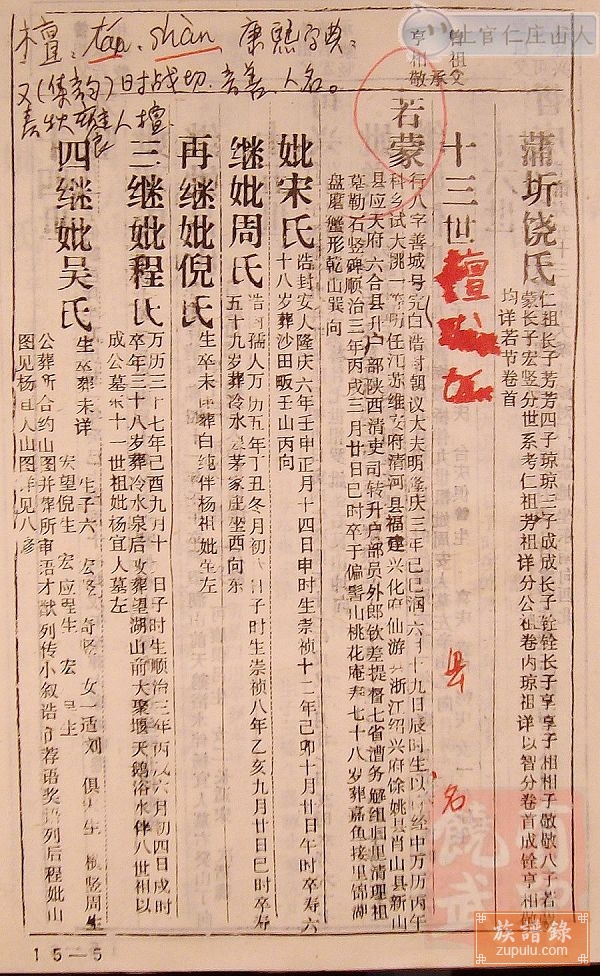 檀 shàn 康熙字典
又《集韵》时战切 音善 人名。
曾祖父
亨相敬承
蒲圻饶氏
仁祖长子芳芳四子琼琼三子成成长子铨铨长子享享子相相子敬敬八子若
蒙长子宏竖分世系考仁祖芳祖详分公祖卷内琼祖详以智分卷首成铨亨相敬
均详若节卷首
十三世
若蒙
行八字善城号完白诰封朝议大夫明隆庆三年己巳润六月十九日辰时生以
科乡试大挑一等明任江苏维安府清河县福建兴化府仙游 浙江绍兴府馀姚县肖山县新山
县应天府六合县升户部陕西清吏司转升户部员外郎钦差提督七省漕务解组归里清理祖
墓勒石竖碑顺治三年丙戌三月廿日巳时卒于偏髻山桃花庵寿七十八岁葬嘉鱼接里锦湖
盘磨蟹形乾山巽向
妣宋氏
诰封安人隆庆六年壬申正月十四日申时生崇祯十二年己卯十月廿日午时卒寿六
十八岁葬沙田畈壬山丙向
继妣周氏
孺人万历五年丁丑冬月初 日子时生崇祯八年乙亥九月廿日巳时卒寿
五十九岁葬冷水 茅家庄坐西向东
再继妣倪氏
生卒未详葬白纯伴杨祖妣坐左
三继妣程氏
万历三十七年己酉九月十 日子时生顺治三年丙戌六月初四日戌时
卒年三十八岁葬冷水泉后改葬望湖山前大聚堰天鹅浴水伴八世祖以
成公墓东十一世祖妣杨宜人墓左
四继妣吴氏
生卒葬未详
生子六 宏竖 奇 女一适刘 俱 生 竖周生
宏望倪生 宏应程生 宏 吴生
公葬所合约山图并葬所审语才猷列传小叙诰 荐语奖 列后程妣山
图见杨 人山图详见八修
县名
15—5
上官仁庄山人
族譜錄
zupulu.com